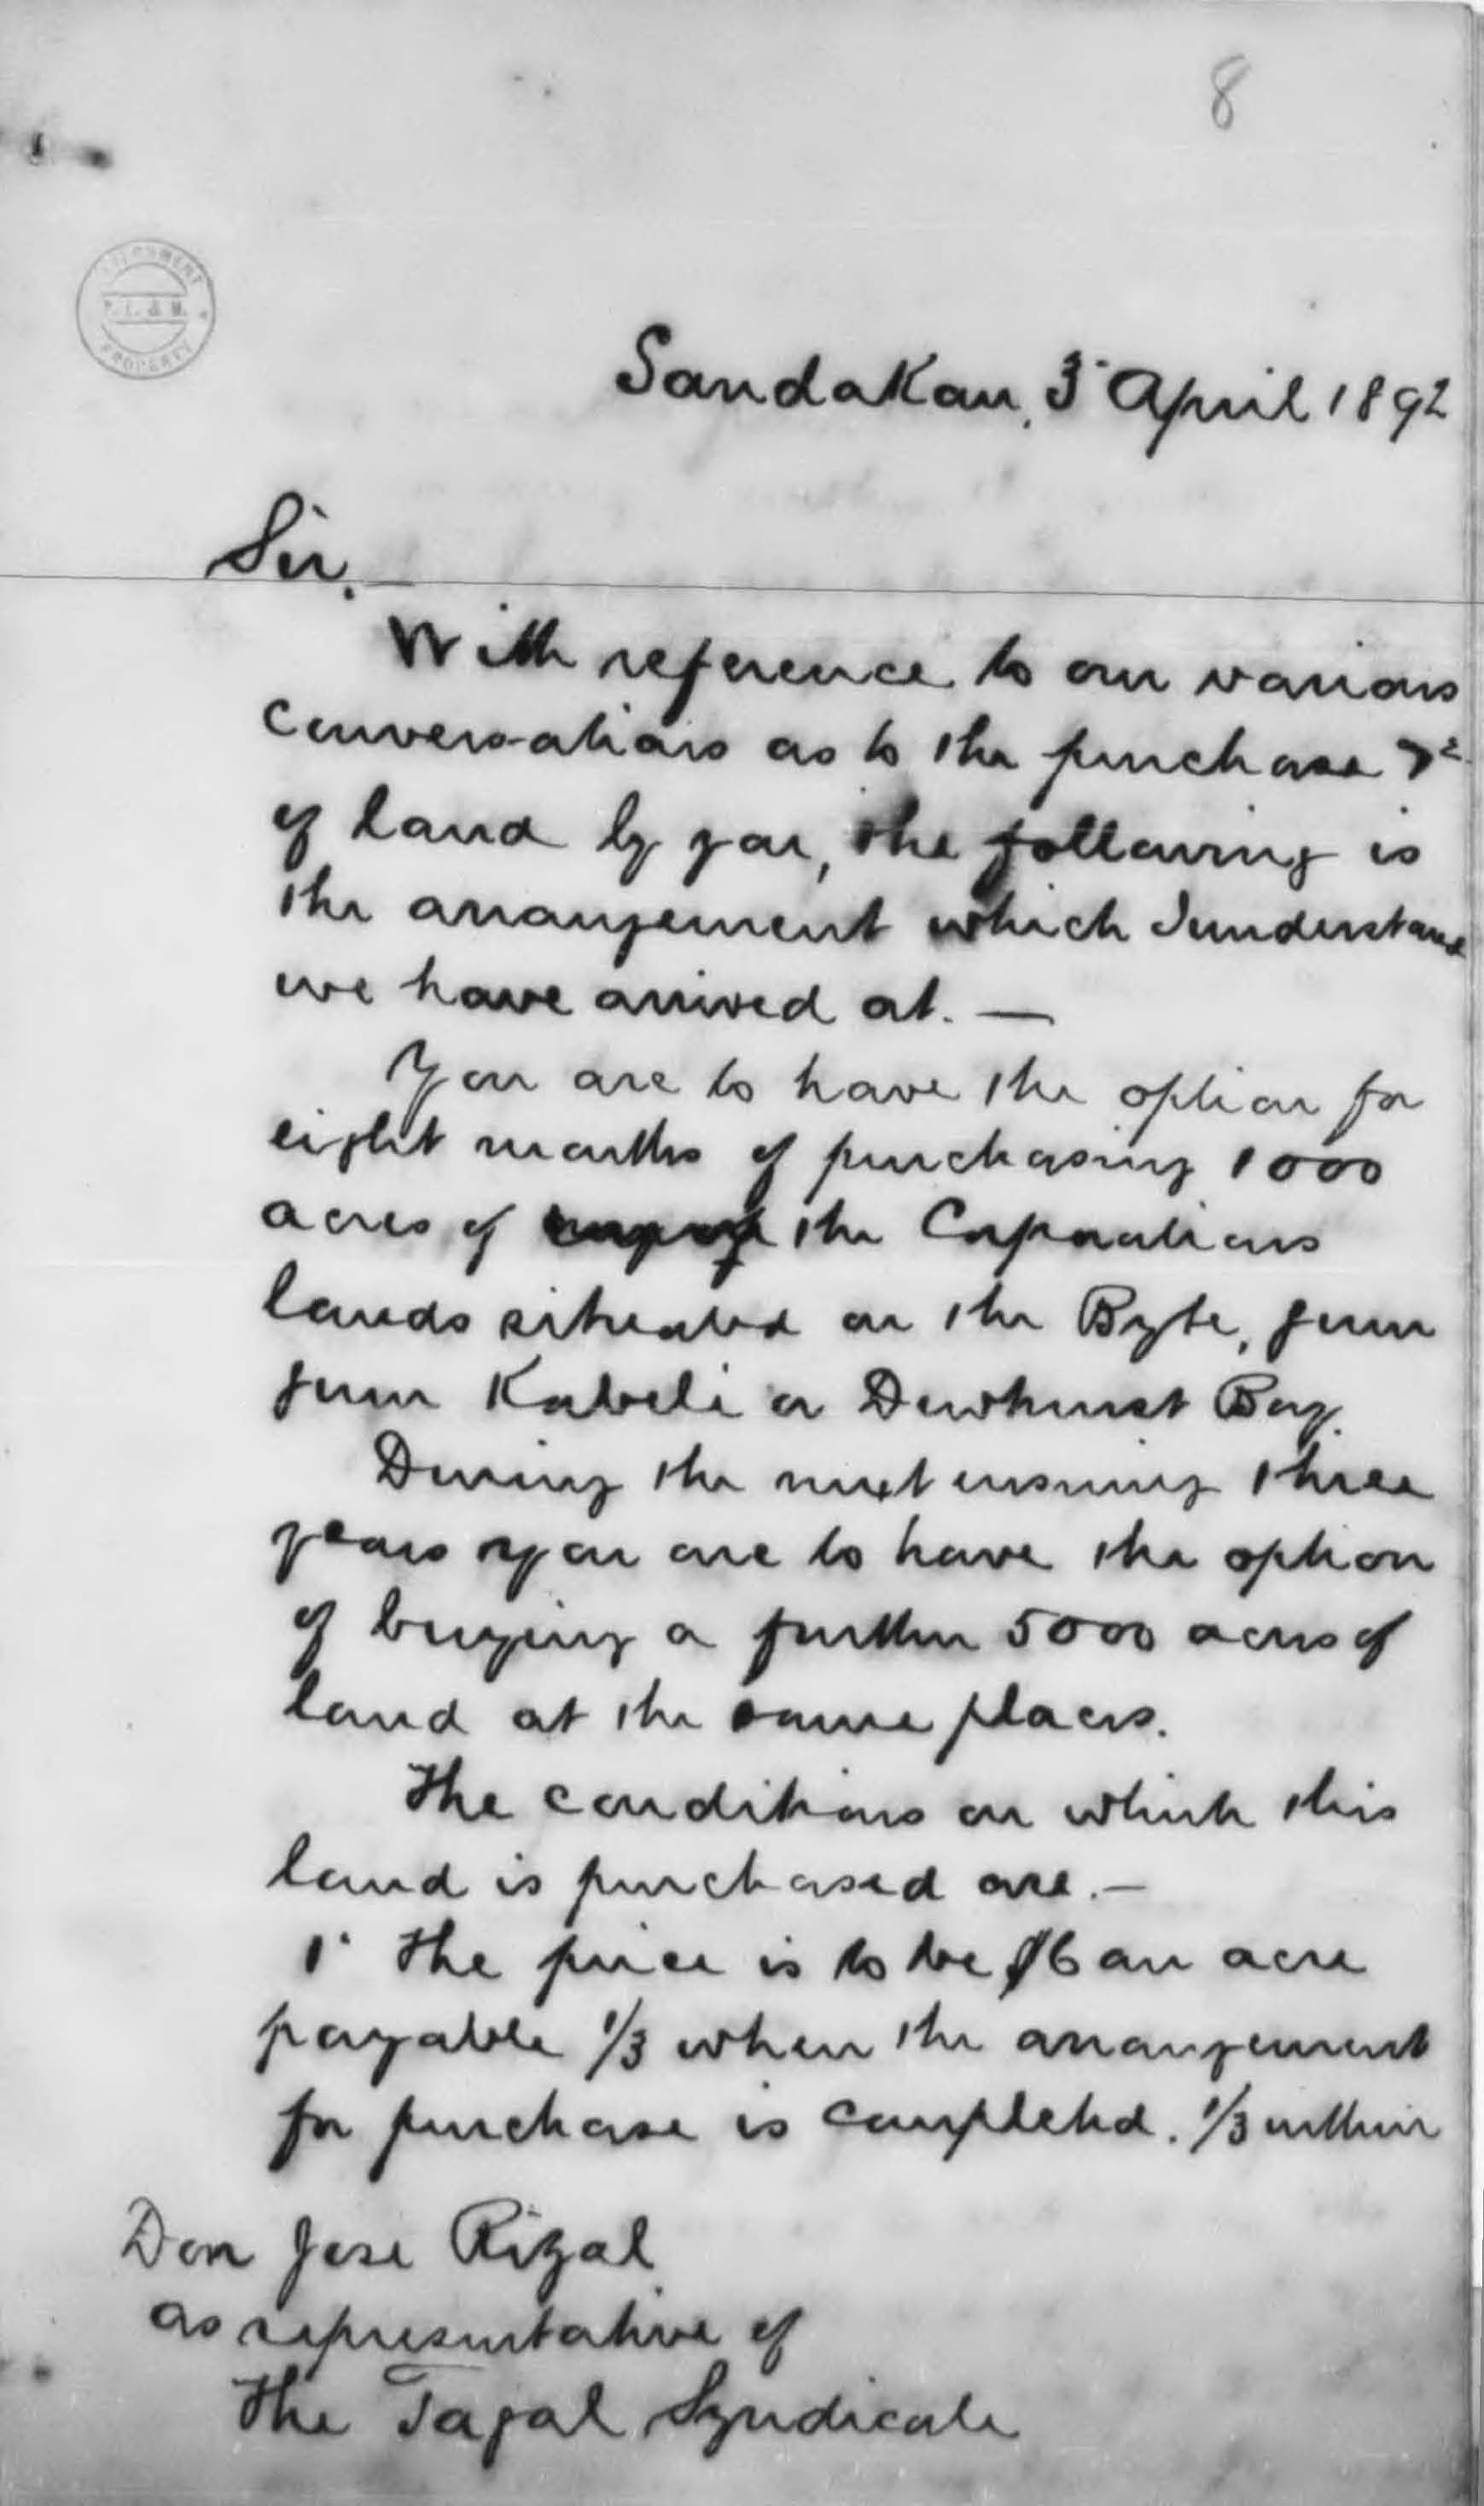 8
GOVERNMENT
PROPERTY
Sandakan, 3 April 1892
Sir,
With reference to our various
conversations as to the purchase
of land by you, the following is
the arrangement which I understand
we have arrived at. —
You are to have the option for
eight months of purchasing 1000
acres of the Corporations
lands situated on the Byte, Sum
Sum Kabeli or Dewhurst Bay.
During the next ensuing three
years you are to have the option
of buying a further 5000 acres of
land at the same places.
The conditions on which this
land is purchased are. —
1 The price is to be $6 an acre
payable 1/3 when the arrangement
for purchase is completed. 1/3 within
Don Jose Rizal
as representative of
The Tagal Syndicate